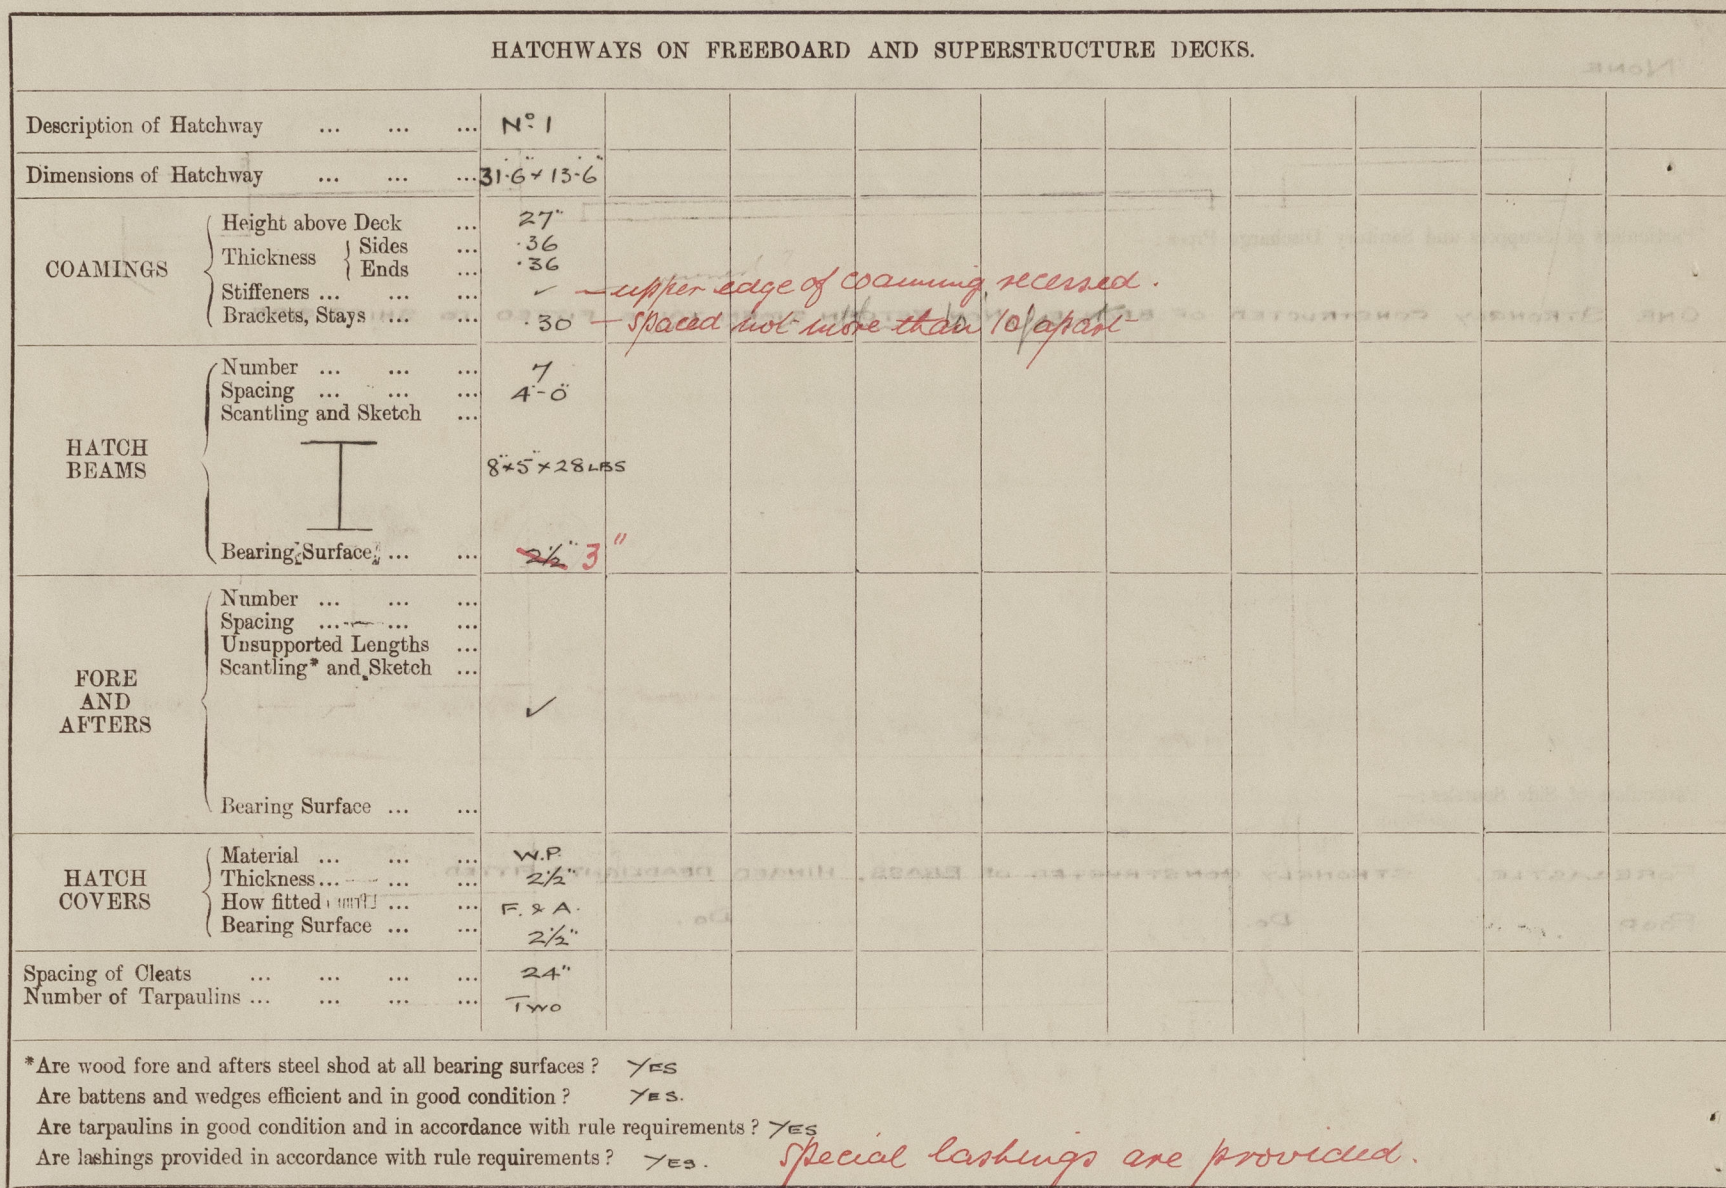 HATCHWAYS ON FREEBOARD AND SUPERSTRUCTURE DECKS.
Description of Hatchway ... ... ... No. 1
Dimensions of Hatchway ... ... ... 31'-6" × 13'-6"
COAMINGS
Height above Deck ... 27"
Thickness { Sides ... .36
Ends ... .36
Stiffeners ... ... ... ✓ — upper edge of coaming recessed.
Brackets, Stays ... ... .30 — spaced not more than 10' apart
HATCH BEAMS
Number ... ... ... 7
Spacing ... ... ... 4'-0"
Scantling and Sketch ...
8" × 5" × 28 LBS
Bearing Surface ... ... 2½" 3"
FORE AND AFTERS
Number ... ... ...
Spacing ... ... ...
Unsupported Lengths ...
Scantling* and Sketch ...
✓
Bearing Surface ... ...
HATCH COVERS
Material ... ... ... W.P.
Thickness ... ... ... 2½"
How fitted ... ... F. & A.
Bearing Surface ... ... 2½"
Spacing of Cleats ... ... ... ... 24"
Number of Tarpaulins ... ... ... ... Two
*Are wood fore and afters steel shod at all bearing surfaces? YES
Are battens and wedges efficient and in good condition? YES.
Are tarpaulins in good condition and in accordance with rule requirements? YES
Are lashings provided in accordance with rule requirements? YES. Special lashings are provided.